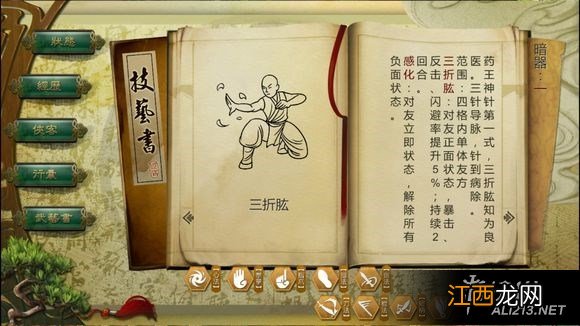 狀態
經歷
俠客
行囊
武藝書
技藝書
三折肱
暗器：一
药王神针第一式，三折肱知为良
医。三针导脉，针到病除。
范围：四格内单体友方
三折肱：对友正面状态，暴击、
反击、闪避率提升5%；持续2
回合。
感化：对友立即状态，解除所有
负面状态。
江西龙网
ALI213.NET